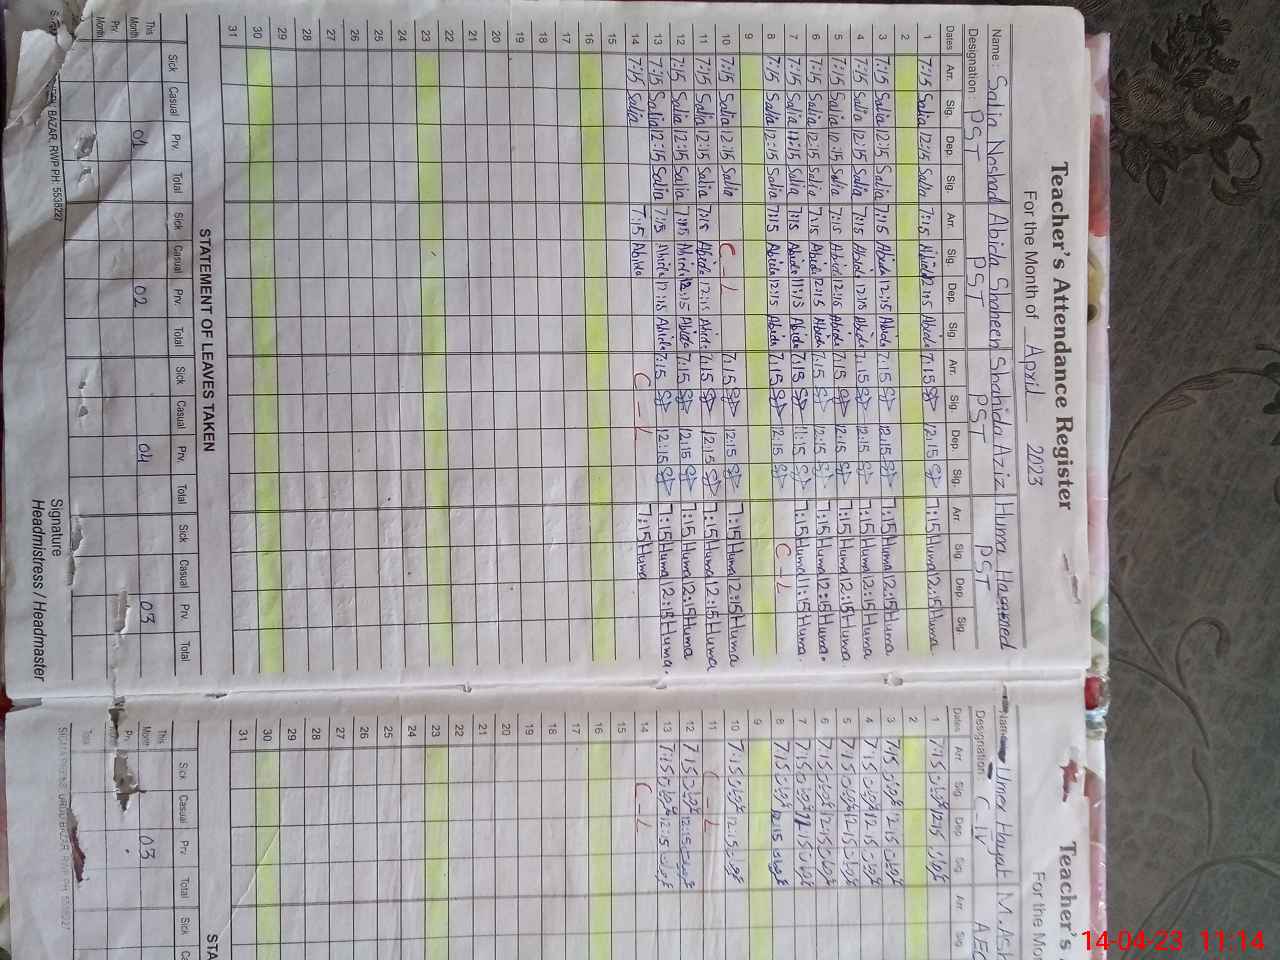 Teacher's Attendance Register
For the Month of April 2023
Name: Salia Noshad Abida Shaheen Shahida Aziz Huma Hameed
Designation: PST PST PST PST
Dates Arr. Sig. Dep. Sig. Arr. Sig. Dep. Sig. Arr. Sig. Dep. Sig. Arr. Sig. Dep. Sig.
1 7:15 Salia 12:15 Salia 7:15 Abida 12:15 Abida 7:15 12:15 7:15 Huma 12:15 Huma
2
3 7:15 Salia 12:15 Salia 7:15 Abida 12:15 Abida 7:15 12:15 7:15 Huma 12:15 Huma
4 7:15 Salia 12:15 Salia 7:15 Abida 12:15 Abida 7:15 12:15 7:15 Huma 12:15 Huma
5 7:15 Salia 12:15 Salia 7:15 Abida 12:15 Abida 7:15 12:15 7:15 Huma 12:15 Huma.
6 7:15 Salia 12:15 Salia 7:15 Abida 12:15 Abida 7:15 12:15 7:15 Huma 12:15 Huma.
7 7:15 Salia 11:15 Salia 7:15 Abida 11:15 Abida 7:15 11:15 7:15 Huma 11:15 Huma.
8 7:15 Salia 12:15 Salia 7:15 Abida 12:15 Abida 7:15 12:15 C-L
9
10 7:15 Salia 12:15 Salia C-L 7:15 12:15 7:15 Huma 12:15 Huma
11 7:15 Salia 12:15 Salia 7:15 Abida 12:15 Abida 7:15 12:15 7:15 Huma 12:15 Huma
12 7:15 Salia 12:15 Salia 7:15 Abida 12:15 Abida 7:15 12:15 7:15 Huma 12:15 Huma
13 7:15 Salia 12:15 Salia 7:15 Abida 12:15 Abida 7:15 12:15 7:15 Huma 12:15 Huma.
14 7:15 Salia 7:15 Abida C-L 7:15 Huma
15
16
17
18
19
20
21
22
23
24
25
26
27
28
29
30
31
STATEMENT OF LEAVES TAKEN
Sick Casual Prv. Total Sick Casual Prv. Total Sick Casual Prv. Total Sick Casual Prv. Total
This Month 01 02 04 03
Prv. Month
Signature
Headmistress / Headmaster
BAZAR, RWP PH: 5538227
Teacher's
For the Mon
Name Umer Hayat M. Ash
Designation: C-IV AEO
Dates Arr. Sig. Dep. Sig. Arr. Sig.
1 7:15 12:15
2
3 7:15 12:15
4 7:15 12:15
5 7:15 12:15
6 7:15 12:15
7 7:15 12:15
8 7:15 12:15
9
10 7:15 12:15
11 C-L
12 7:15 12:15
13 7:15 12:15
14 C-L
15
16
17
18
19
20
21
22
23
24
25
26
27
28
29
30
31
STA
Sick Casual Prv Total Sick
This Month 03
URDU BAZAR, RWP PH: 5538227
14-04-23 11:14